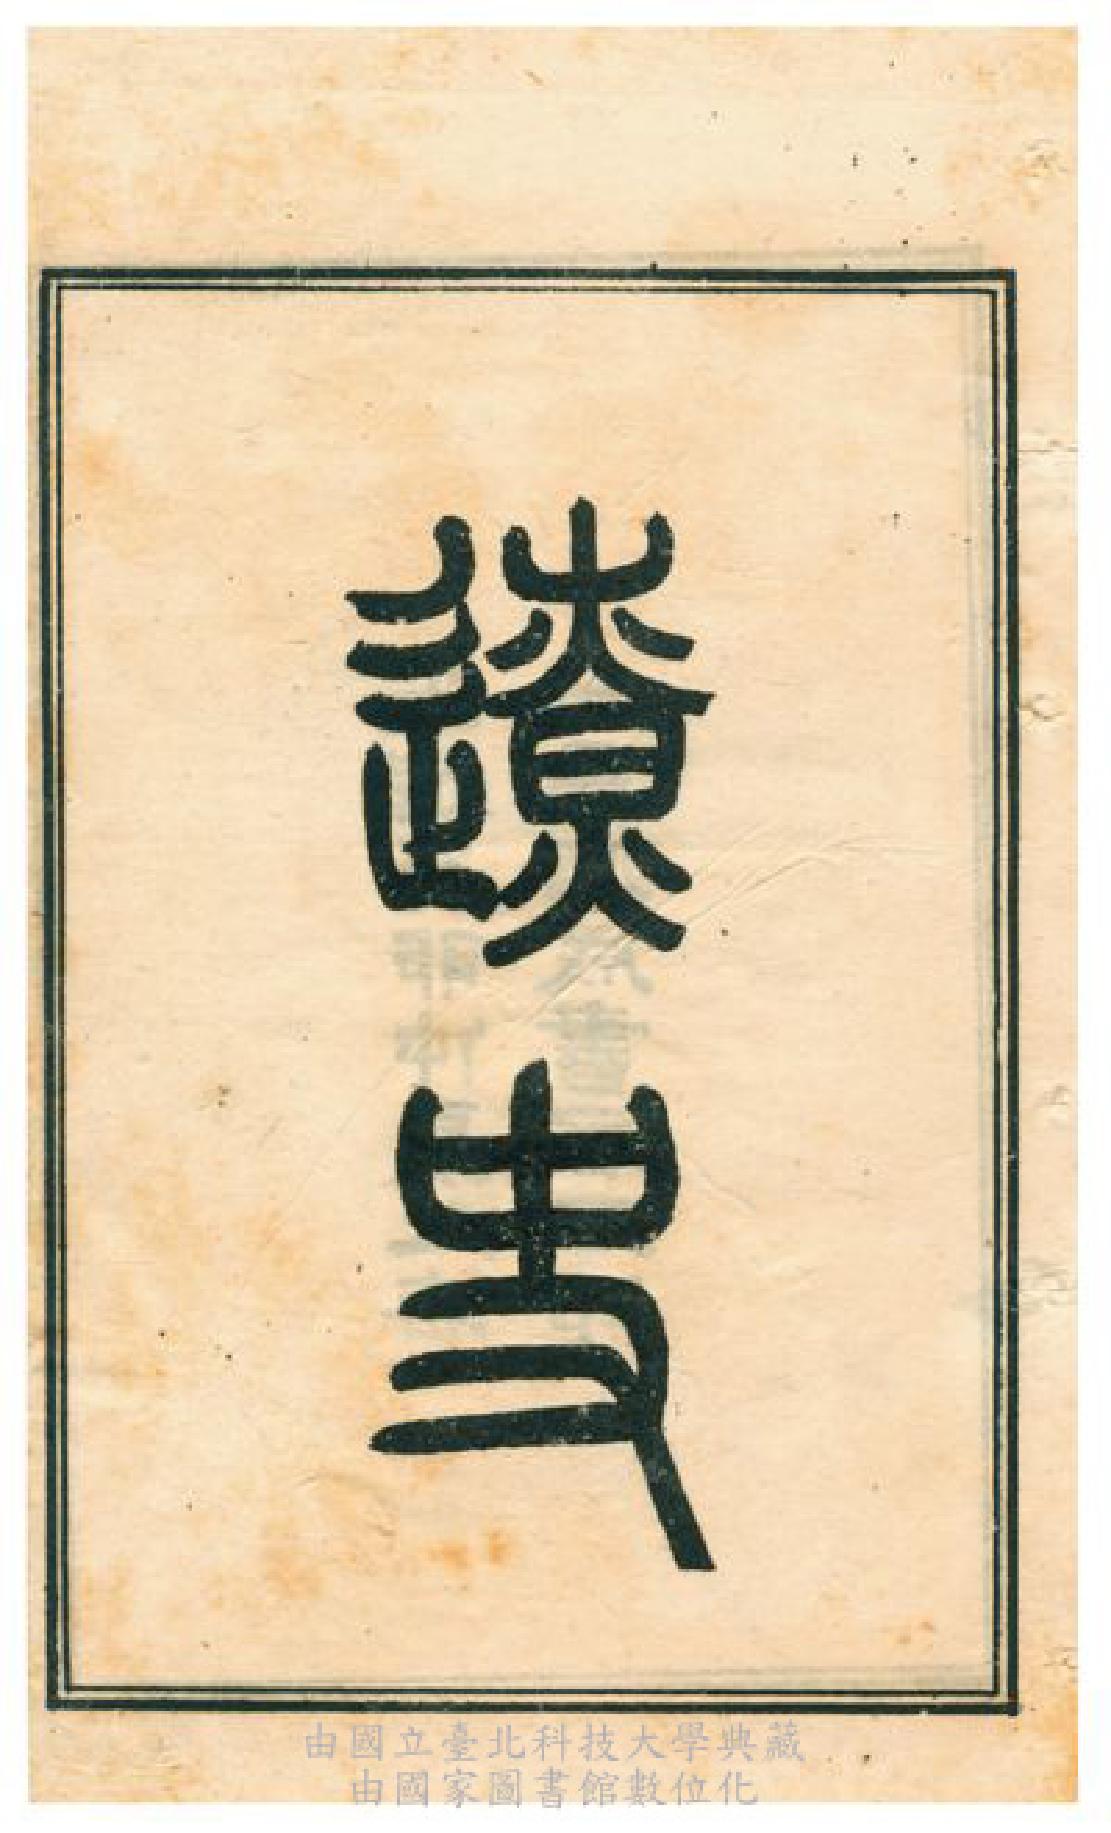 遼史
由國立臺北科技大學典藏
由國家圖書館數位化